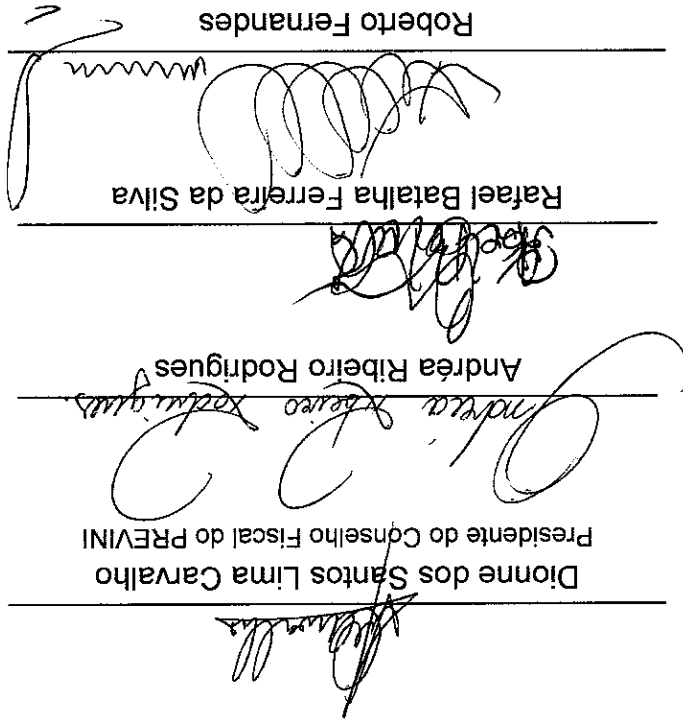 Dionne dos Santos Lima Carvalho
Presidente do Conselho Fiscal do PREVINI
Andréa Ribeiro Rodrigues.
Andréa Ribeiro Rodrigues
Rafael Batalha Ferreira da Silva
Roberto Fernandes